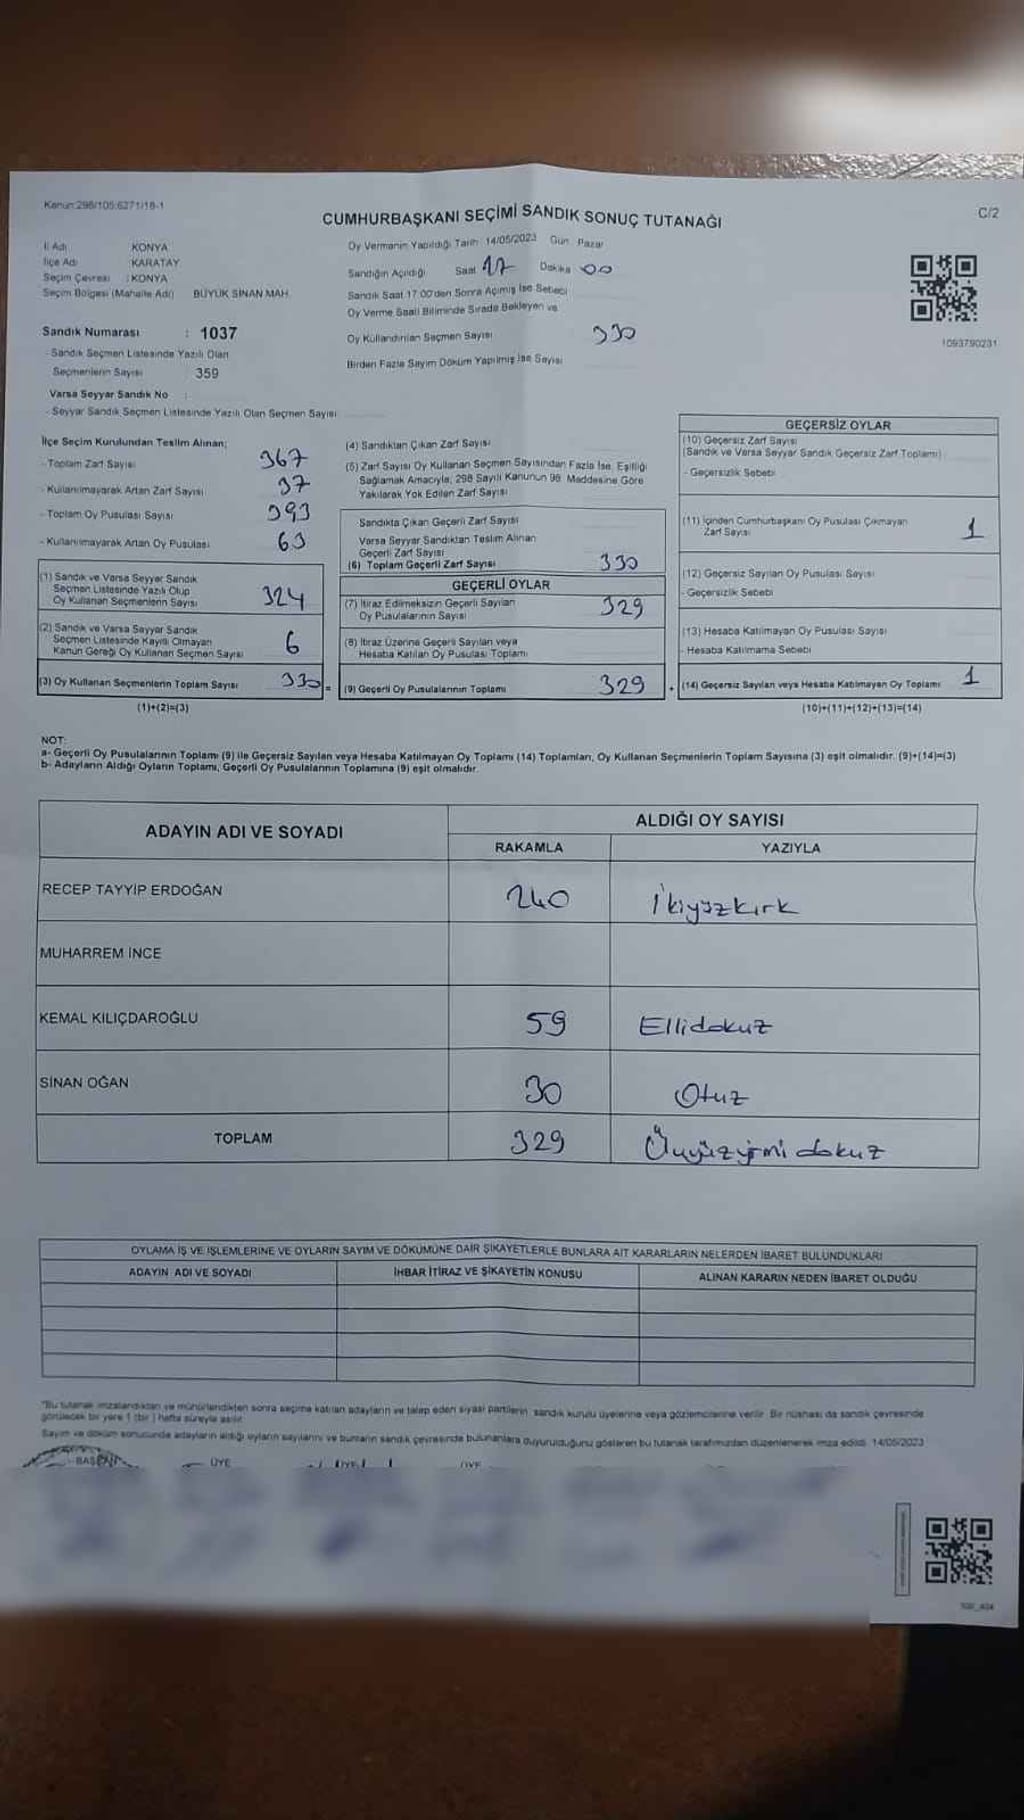 Kanun:298/105;6271/18-1
CUMHURBAŞKANI SEÇİMİ SANDIK SONUÇ TUTANAĞI
C/2
İl Adı KONYA
İlçe Adı KARATAY
Seçim Çevresi : KONYA
Seçim Bölgesi (Mahalle Adı) BÜYÜK SİNAN MAH.
Sandık Numarası : 1037
- Sandık Seçmen Listesinde Yazılı Olan
Seçmenlerin Sayısı 359
Varsa Seyyar Sandık No :
- Seyyar Sandık Seçmen Listesinde Yazılı Olan Seçmen Sayısı
Oy Vermenin Yapıldığı Tarih 14/05/2023 Gün Pazar
Sandığın Açıldığı Saat 17 Dakika 00
Sandık Saat 17.00'den Sonra Açılmış İse Sebebi
Oy Verme Saati Bitiminde Sırada Bekleyen ve
Oy Kullandırılan Seçmen Sayısı 330
Birden Fazla Sayım Döküm Yapılmış İse Sayısı
1093790231
İlçe Seçim Kurulundan Teslim Alınan;
- Toplam Zarf Sayısı 367
- Kullanılmayarak Artan Zarf Sayısı 37
- Toplam Oy Pusulası Sayısı 393
- Kullanılmayarak Artan Oy Pusulası 63
(1) Sandık ve Varsa Seyyar Sandık
Seçmen Listesinde Yazılı Olup
Oy Kullanan Seçmenlerin Sayısı 324
(2) Sandık ve Varsa Seyyar Sandık
Seçmen Listesinde Kayıtlı Olmayan
Kanun Gereği Oy Kullanan Seçmen Sayısı 6
(3) Oy Kullanan Seçmenlerin Toplam Sayısı 330 =
(1)+(2)=(3)
(4) Sandıktan Çıkan Zarf Sayısı
(5) Zarf Sayısı Oy Kullanan Seçmen Sayısından Fazla İse, Eşitliği
Sağlamak Amacıyla, 298 Sayılı Kanunun 98. Maddesine Göre
Yakılarak Yok Edilen Zarf Sayısı
Sandıkta Çıkan Geçerli Zarf Sayısı
Varsa Seyyar Sandıktan Teslim Alınan
Geçerli Zarf Sayısı
(6) Toplam Geçerli Zarf Sayısı 330
GEÇERLİ OYLAR
(7) İtiraz Edilmeksizin Geçerli Sayılan
Oy Pusulalarının Sayısı 329
(8) İtiraz Üzerine Geçerli Sayılan veya
Hesaba Katılan Oy Pusulası Toplamı
(9) Geçerli Oy Pusulalarının Toplamı 329 +
GEÇERSİZ OYLAR
(10) Geçersiz Zarf Sayısı
(Sandık ve Varsa Seyyar Sandık Geçersiz Zarf Toplamı)
- Geçersizlik Sebebi
(11) İçinden Cumhurbaşkanı Oy Pusulası Çıkmayan
Zarf Sayısı 1
(12) Geçersiz Sayılan Oy Pusulası Sayısı
- Geçersizlik Sebebi
(13) Hesaba Katılmayan Oy Pusulası Sayısı
- Hesaba Katılmama Sebebi
(14) Geçersiz Sayılan veya Hesaba Katılmayan Oy Toplamı 1
(10)+(11)+(12)+(13)=(14)
NOT:
a- Geçerli Oy Pusulalarının Toplamı (9) ile Geçersiz Sayılan veya Hesaba Katılmayan Oy Toplamı (14) Toplamları, Oy Kullanan Seçmenlerin Toplam Sayısına (3) eşit olmalıdır. (9)+(14)=(3)
b- Adayların Aldığı Oyların Toplamı, Geçerli Oy Pusulalarının Toplamına (9) eşit olmalıdır.
ADAYIN ADI VE SOYADI
ALDIĞI OY SAYISI
RAKAMLA YAZIYLA
RECEP TAYYİP ERDOĞAN 240 İkiyüzkırk
MUHARREM İNCE
KEMAL KILIÇDAROĞLU 59 Ellidokuz
SİNAN OĞAN 30 Otuz
TOPLAM 329 Üçyüzyirmi dokuz
OYLAMA İŞ VE İŞLEMLERİNE VE OYLARIN SAYIM VE DÖKÜMÜNE DAİR ŞİKAYETLERLE BUNLARA AİT KARARLARIN NELERDEN İBARET BULUNDUKLARI
ADAYIN ADI VE SOYADI İHBAR İTİRAZ VE ŞİKAYETİN KONUSU ALINAN KARARIN NEDEN İBARET OLDUĞU
"Bu tutanak imzalandıktan ve mühürlendikten sonra seçime katılan adayların ve talep eden siyasi partilerin sandık kurulu üyelerine veya gözlemcilerine verilir. Bir nüshası da sandık çevresinde
görülecek bir yere 1 (bir) hafta süreyle asılır.
Sayım ve döküm sonucunda adayların aldığı oyların sayılarını ve bunların sandık çevresinde bulunanlara duyurulduğunu gösteren bu tutanak tarafımızdan düzenlenerek imza edildi. 14/05/2023
BAŞKAN ÜYE ÜYE ÜYE